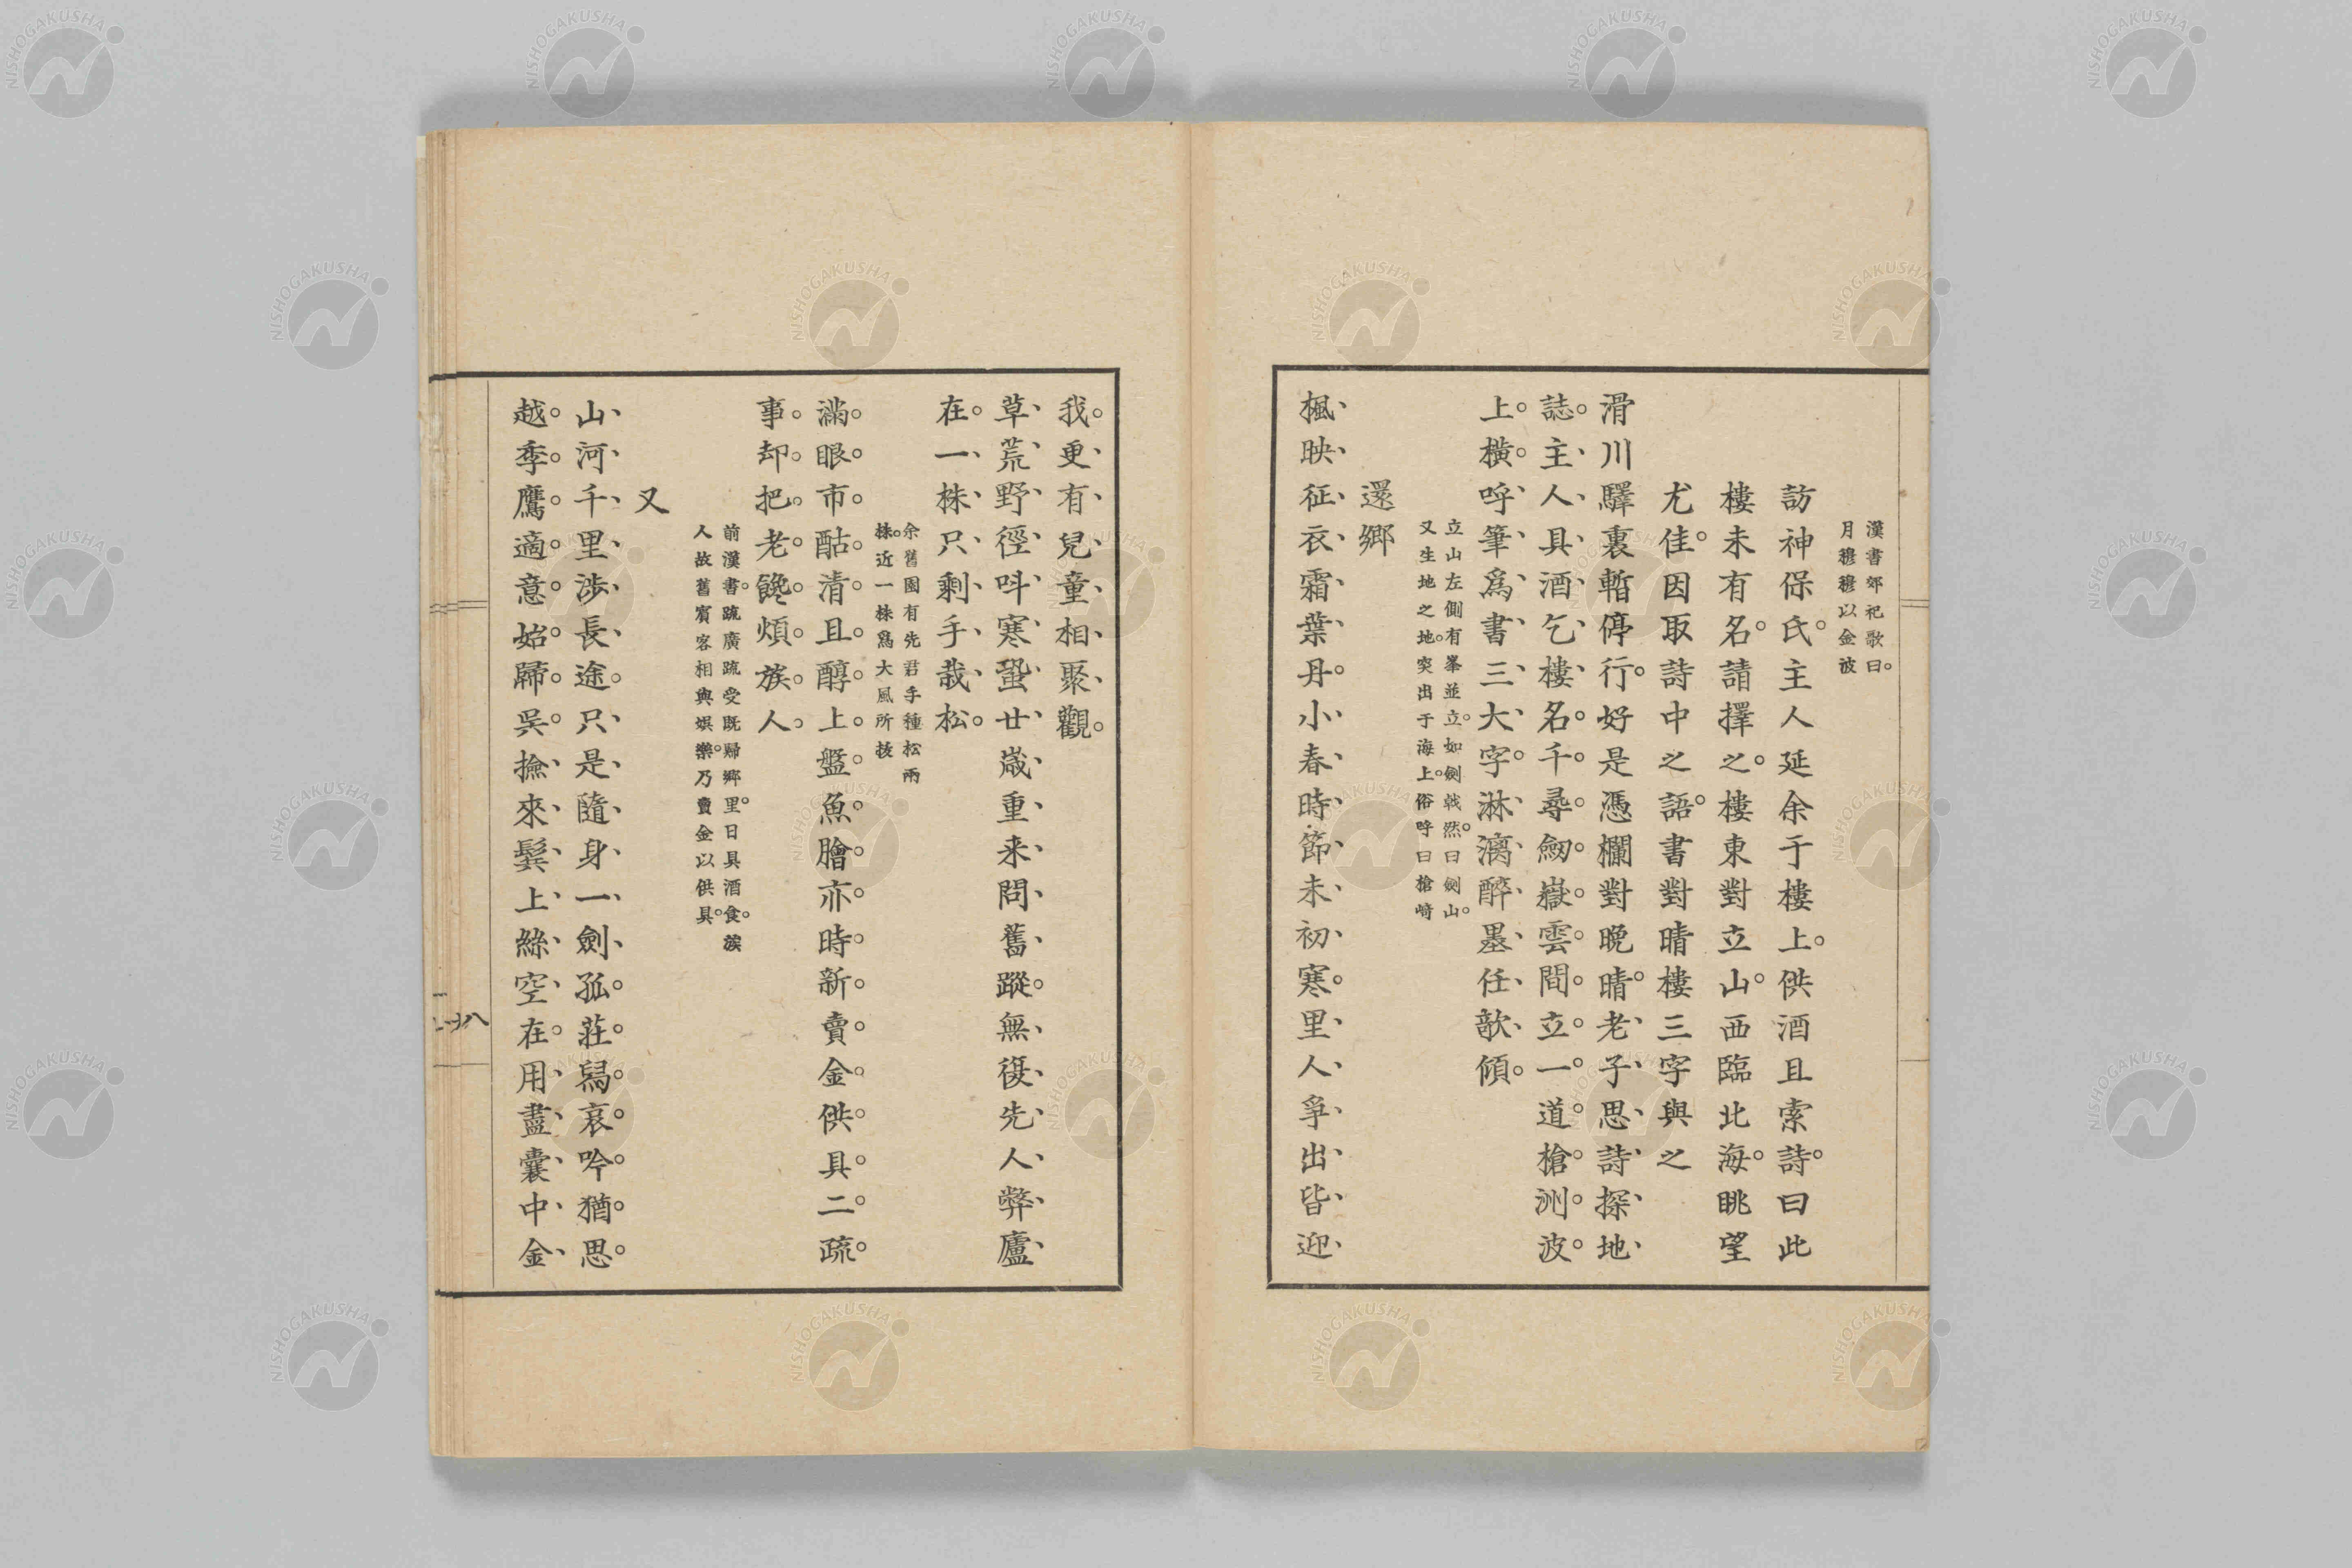 漢書郊祀歌曰。
月穆穆以金波
訪神保氏。主人延余于樓上。供酒且索詩。曰此
樓未有名。請擇之。樓東對立山。西臨北海。眺望
尤佳。因取詩中之語。書對晴樓三字與之
滑川驛裏暫停行。好是憑欄對晚晴。老子思詩探地
誌。主人具酒乞樓名。千尋劒嶽雲間立。一道槍洲波
上橫。呼筆爲書三大字。淋漓醉墨任歌傾。
立山左側有峯並立。如劍戟然。曰劍山。
又生地之地。突出于海上。俗呼曰槍崎
還鄉
楓映征衣霜葉丹。小春時節未初寒。里人爭出皆迎
我。更有兒童相聚觀。
草荒野徑叫寒蛩廿歲重来問舊蹤。無復先人弊廬
在。一株只剩手栽松。
余舊園有先君手種松兩
株。近一株爲大風所拔
滿眼市酤清且醇。上盤魚膾亦時新。賣金供具二疏
事。却把老饞煩族人。
前漢書。疏廣疏受既歸鄉里。日具酒食。族
人故舊賓客相與娛樂。乃賣金以供具。
又
山河千里涉長途。只是隨身一劍孤。莊舄哀吟猶思
越。季鷹適意始歸吳。撿來鬓上絲空在。用盡囊中金
八
NISHOGAKUSHA